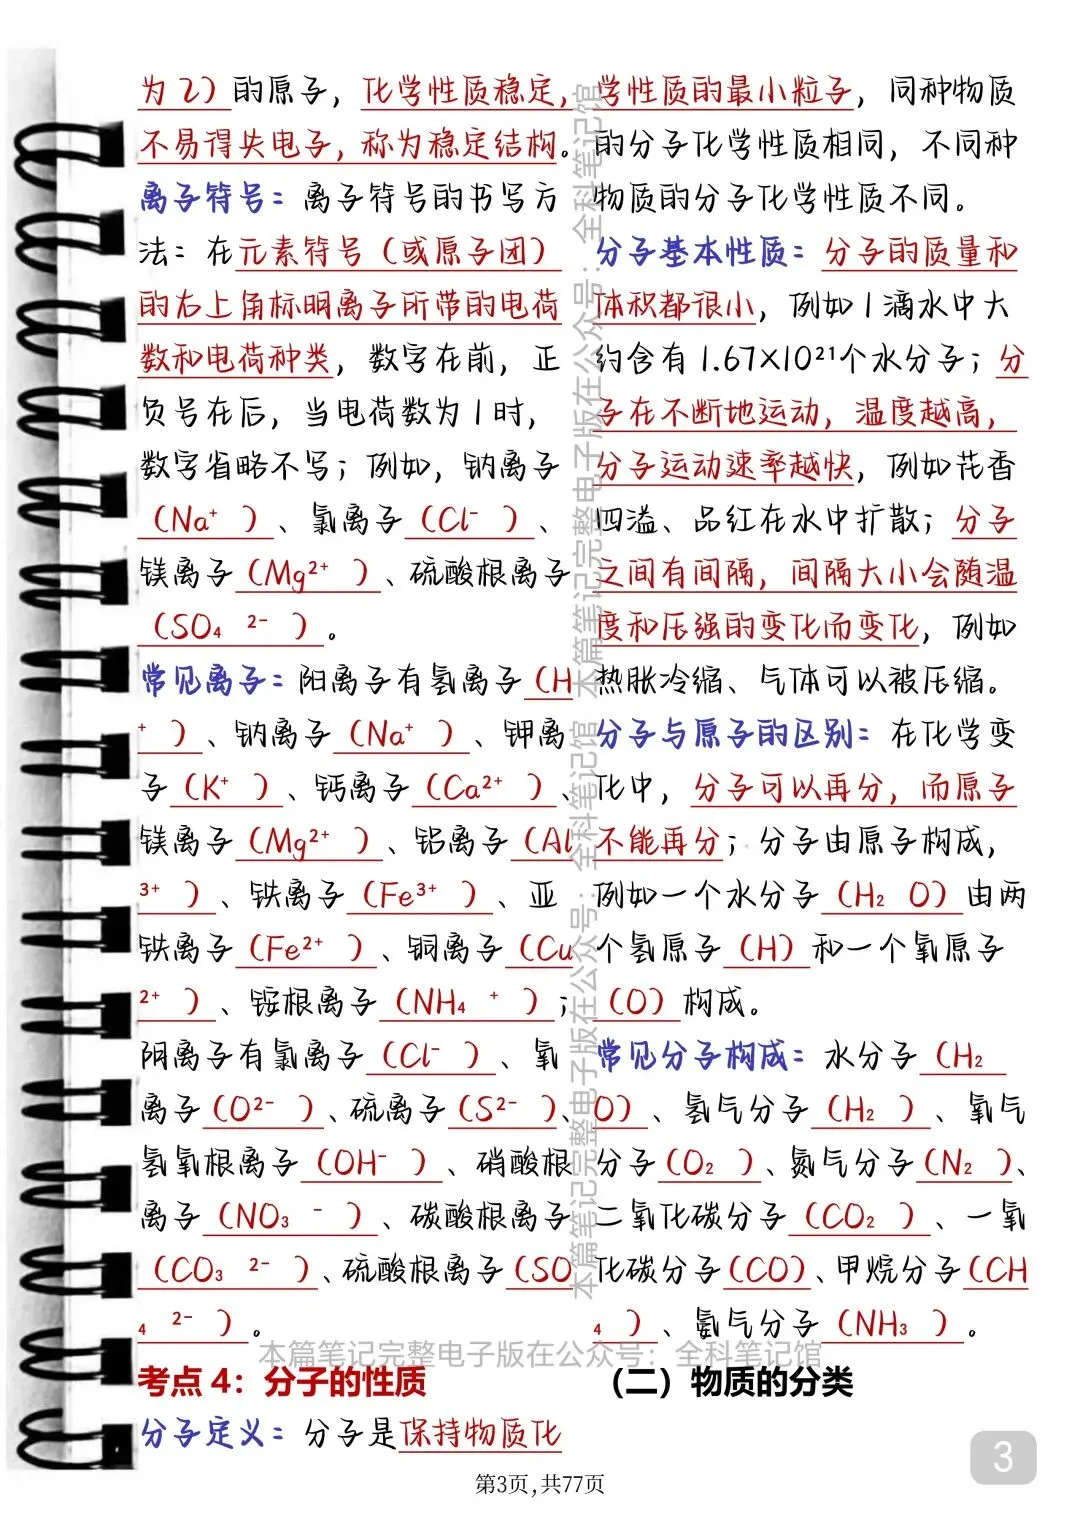 为2）的原子，化学性质稳定，
不易得失电子，称为稳定结构。
离子符号：离子符号的书写方
法：在元素符号（或原子团）
的右上角标明离子所带的电荷
数和电荷种类，数字在前，正
负号在后，当电荷数为1时，
数字省略不写；例如，钠离子
（Na⁺ ）、氯离子（Cl⁻ ）、
镁离子（Mg²⁺ ）、硫酸根离子
（SO₄ ²⁻ ）。
常见离子：阳离子有氢离子（H
⁺ ）、钠离子（Na⁺ ）、钾离
子（K⁺ ）、钙离子（Ca²⁺ ）、
镁离子（Mg²⁺ ）、铝离子（Al
³⁺ ）、铁离子（Fe³⁺ ）、亚
铁离子（Fe²⁺ ）、铜离子（Cu
²⁺ ）、铵根离子（NH₄ ⁺ ）；
阴离子有氯离子（Cl⁻ ）、氧
离子（O²⁻ ）、硫离子（S²⁻ ）、
氢氧根离子（OH⁻ ）、硝酸根
离子（NO₃ ⁻ ）、碳酸根离子
（CO₃ ²⁻ ）、硫酸根离子（SO
₄ ²⁻ ）。
考点 4：分子的性质
分子定义：分子是保持物质化
学性质的最小粒子，同种物质
的分子化学性质相同，不同种
物质的分子化学性质不同。
分子基本性质：分子的质量和
体积都很小，例如1滴水中大
约含有1.67×10²¹个水分子；分
子在不断地运动，温度越高，
分子运动速率越快，例如花香
四溢、品红在水中扩散；分子
之间有间隔，间隔大小会随温
度和压强的变化而变化，例如
热胀冷缩、气体可以被压缩。
分子与原子的区别：在化学变
化中，分子可以再分，而原子
不能再分；分子由原子构成，
例如一个水分子（H₂ O）由两
个氢原子（H）和一个氧原子
（O）构成。
常见分子构成：水分子（H₂
O）、氢气分子（H₂ ）、氧气
分子（O₂ ）、氮气分子（N₂ ）、
二氧化碳分子（CO₂ ）、一氧
化碳分子（CO）、甲烷分子（CH
₄ ）、氨气分子（NH₃ ）。
（二）物质的分类
本篇笔记完整电子版在公众号：全科笔记馆
本篇笔记完整电子版在公众号：全科笔记馆
本篇笔记完整电子版在公众号：全科笔记馆
3
第3页,共77页